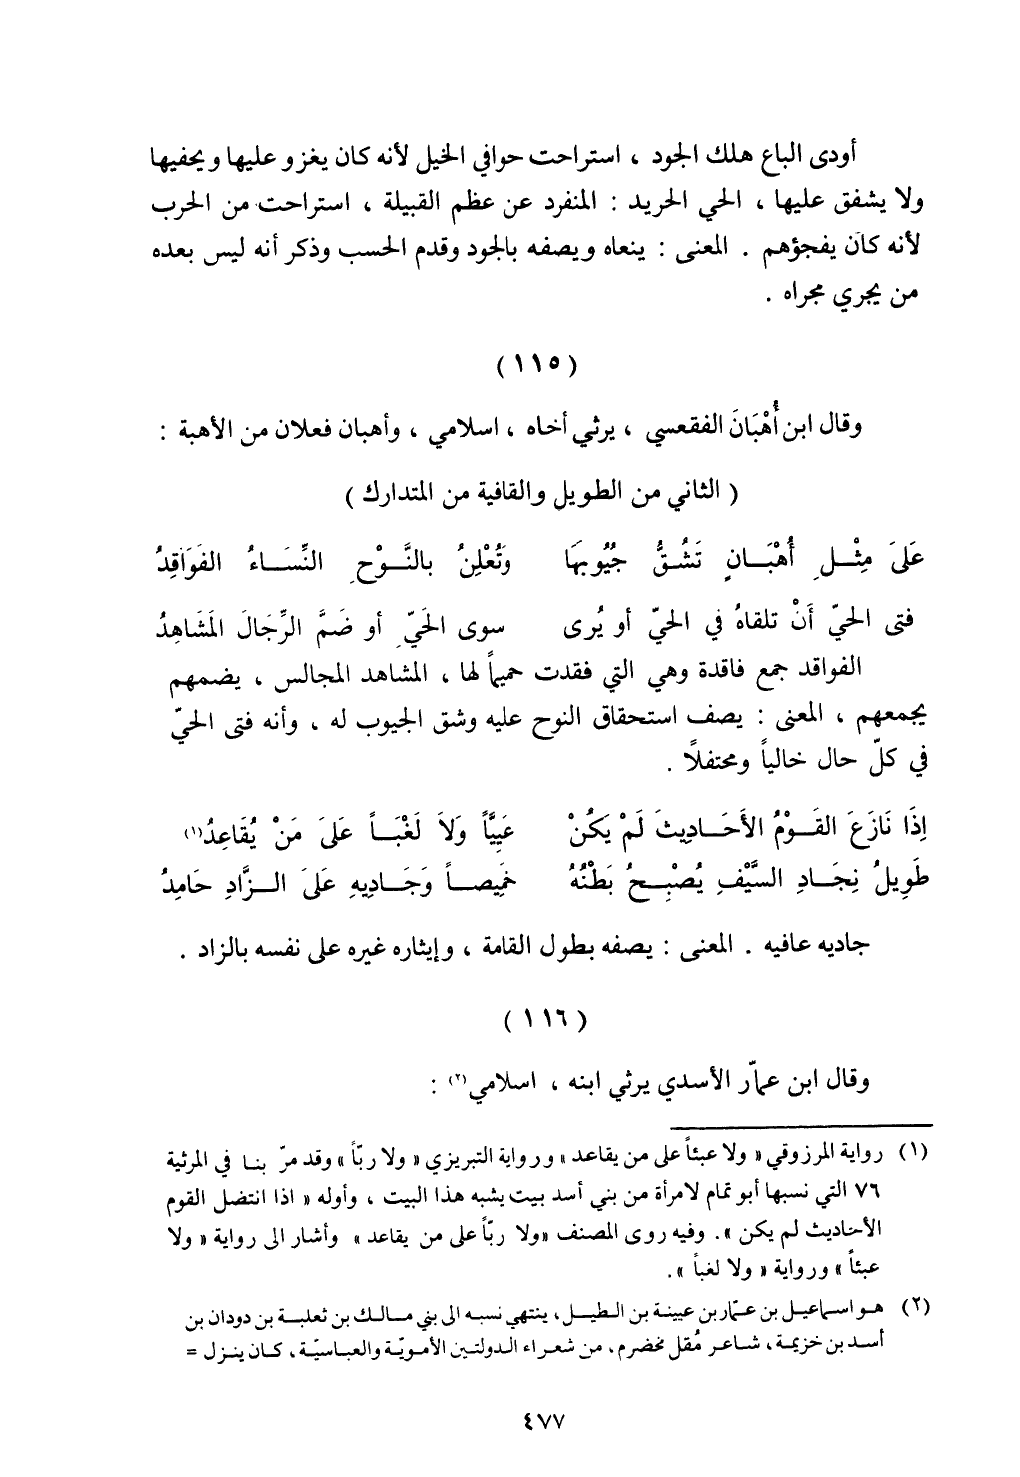 أودى الباع هلك الجود ، استراحت حوافي الخيل لأنه كان يغزو عليها ويحفيها
ولا يشفق عليها ، الحي الحريد : المنفرد عن عظم القبيلة ، استراحت من الحرب
لأنه كان يفجؤهم . المعنى : ينعاه ويصفه بالجود وقدم الحسب وذكر أنه ليس بعده
من يجري مجراه .
( ١١٥ )
وقال ابن أُهْبَانَ الفقعسي ، يرثي أخاه ، اسلامي ، وأهبان فعلان من الأهبة :
( الثاني من الطويل والقافية من المتدارك )
عَلَىَ مِثْـلِ أُهْبَـانٍ تَشُـقُّ جُيُوبَهَا وَتُعْلِنُ بالنَّـوْحِ النِّسَـاءُ الفَوَاقِدُ
فتى الحيّ أَنْ تلقاهُ في الحيّ أو يُرى سوى الحَيِّ أو ضَمَّ الرِّجَالَ المَشَاهِدُ
الفواقد جمع فاقدة وهي التي فقدت حميماً لها ، المشاهد المجالس ، يضمهم
يجمعهم ، المعنى : يصف استحقاق النوح عليه وشق الجيوب له ، وأنه فتى الحيّ
في كلّ حال خالياً ومحتفلاً .
إِذَا نَازَعَ القَـوْمُ الأَحَـادِيثَ لَمْ يَكُنْ عَيِيَّاً وَلاَ لَغْبَـاً عَلَىَ مَنْ يُقَاعِدُ(١)
طَوِيلُ نِجَـادِ السَّيْفِ يُصْبِـحُ بَطْنُهُ خَمِيصـاً وَجَـادِيهِ عَلَىَ الـزَّادِ حَامِدُ
جاديه عافيه . المعنى : يصفه بطول القامة ، وإيثاره غيره على نفسه بالزاد .
( ١١٦ )
وقال ابن عمّار الأسدي يرثي ابنه ، اسلامي(٢) :
(١) رواية المرزوقي « ولا عبئاً على من يقاعد » ورواية التبريزي « ولا ربّاً » وقد مرّ بنـا في المرثية
٧٦ التي نسبها أبو تمام لامرأة من بني أسد بيت يشبه هذا البيت ، وأوله « اذا انتضل القوم
الأحاديث لم يكن ». وفيه روى المصنف «ولا ربّاً على من يقاعد» وأشار الى رواية « ولا
عبئاً » ورواية « ولا لغباً ».
(٢) هـو اسماعيـل بن عمّار بن عيينة بن الـطيـل، ينتهي نسبـه الى بني مـالـك بن ثعلبـة بن دودان بن
أسـد بن خزيمـة، شـاعـر مُقل مخضرم، من شعـراء الـدولتـين الأمويّـة والعبـاسيّـة، كـان ينـزل =
٤٧٧